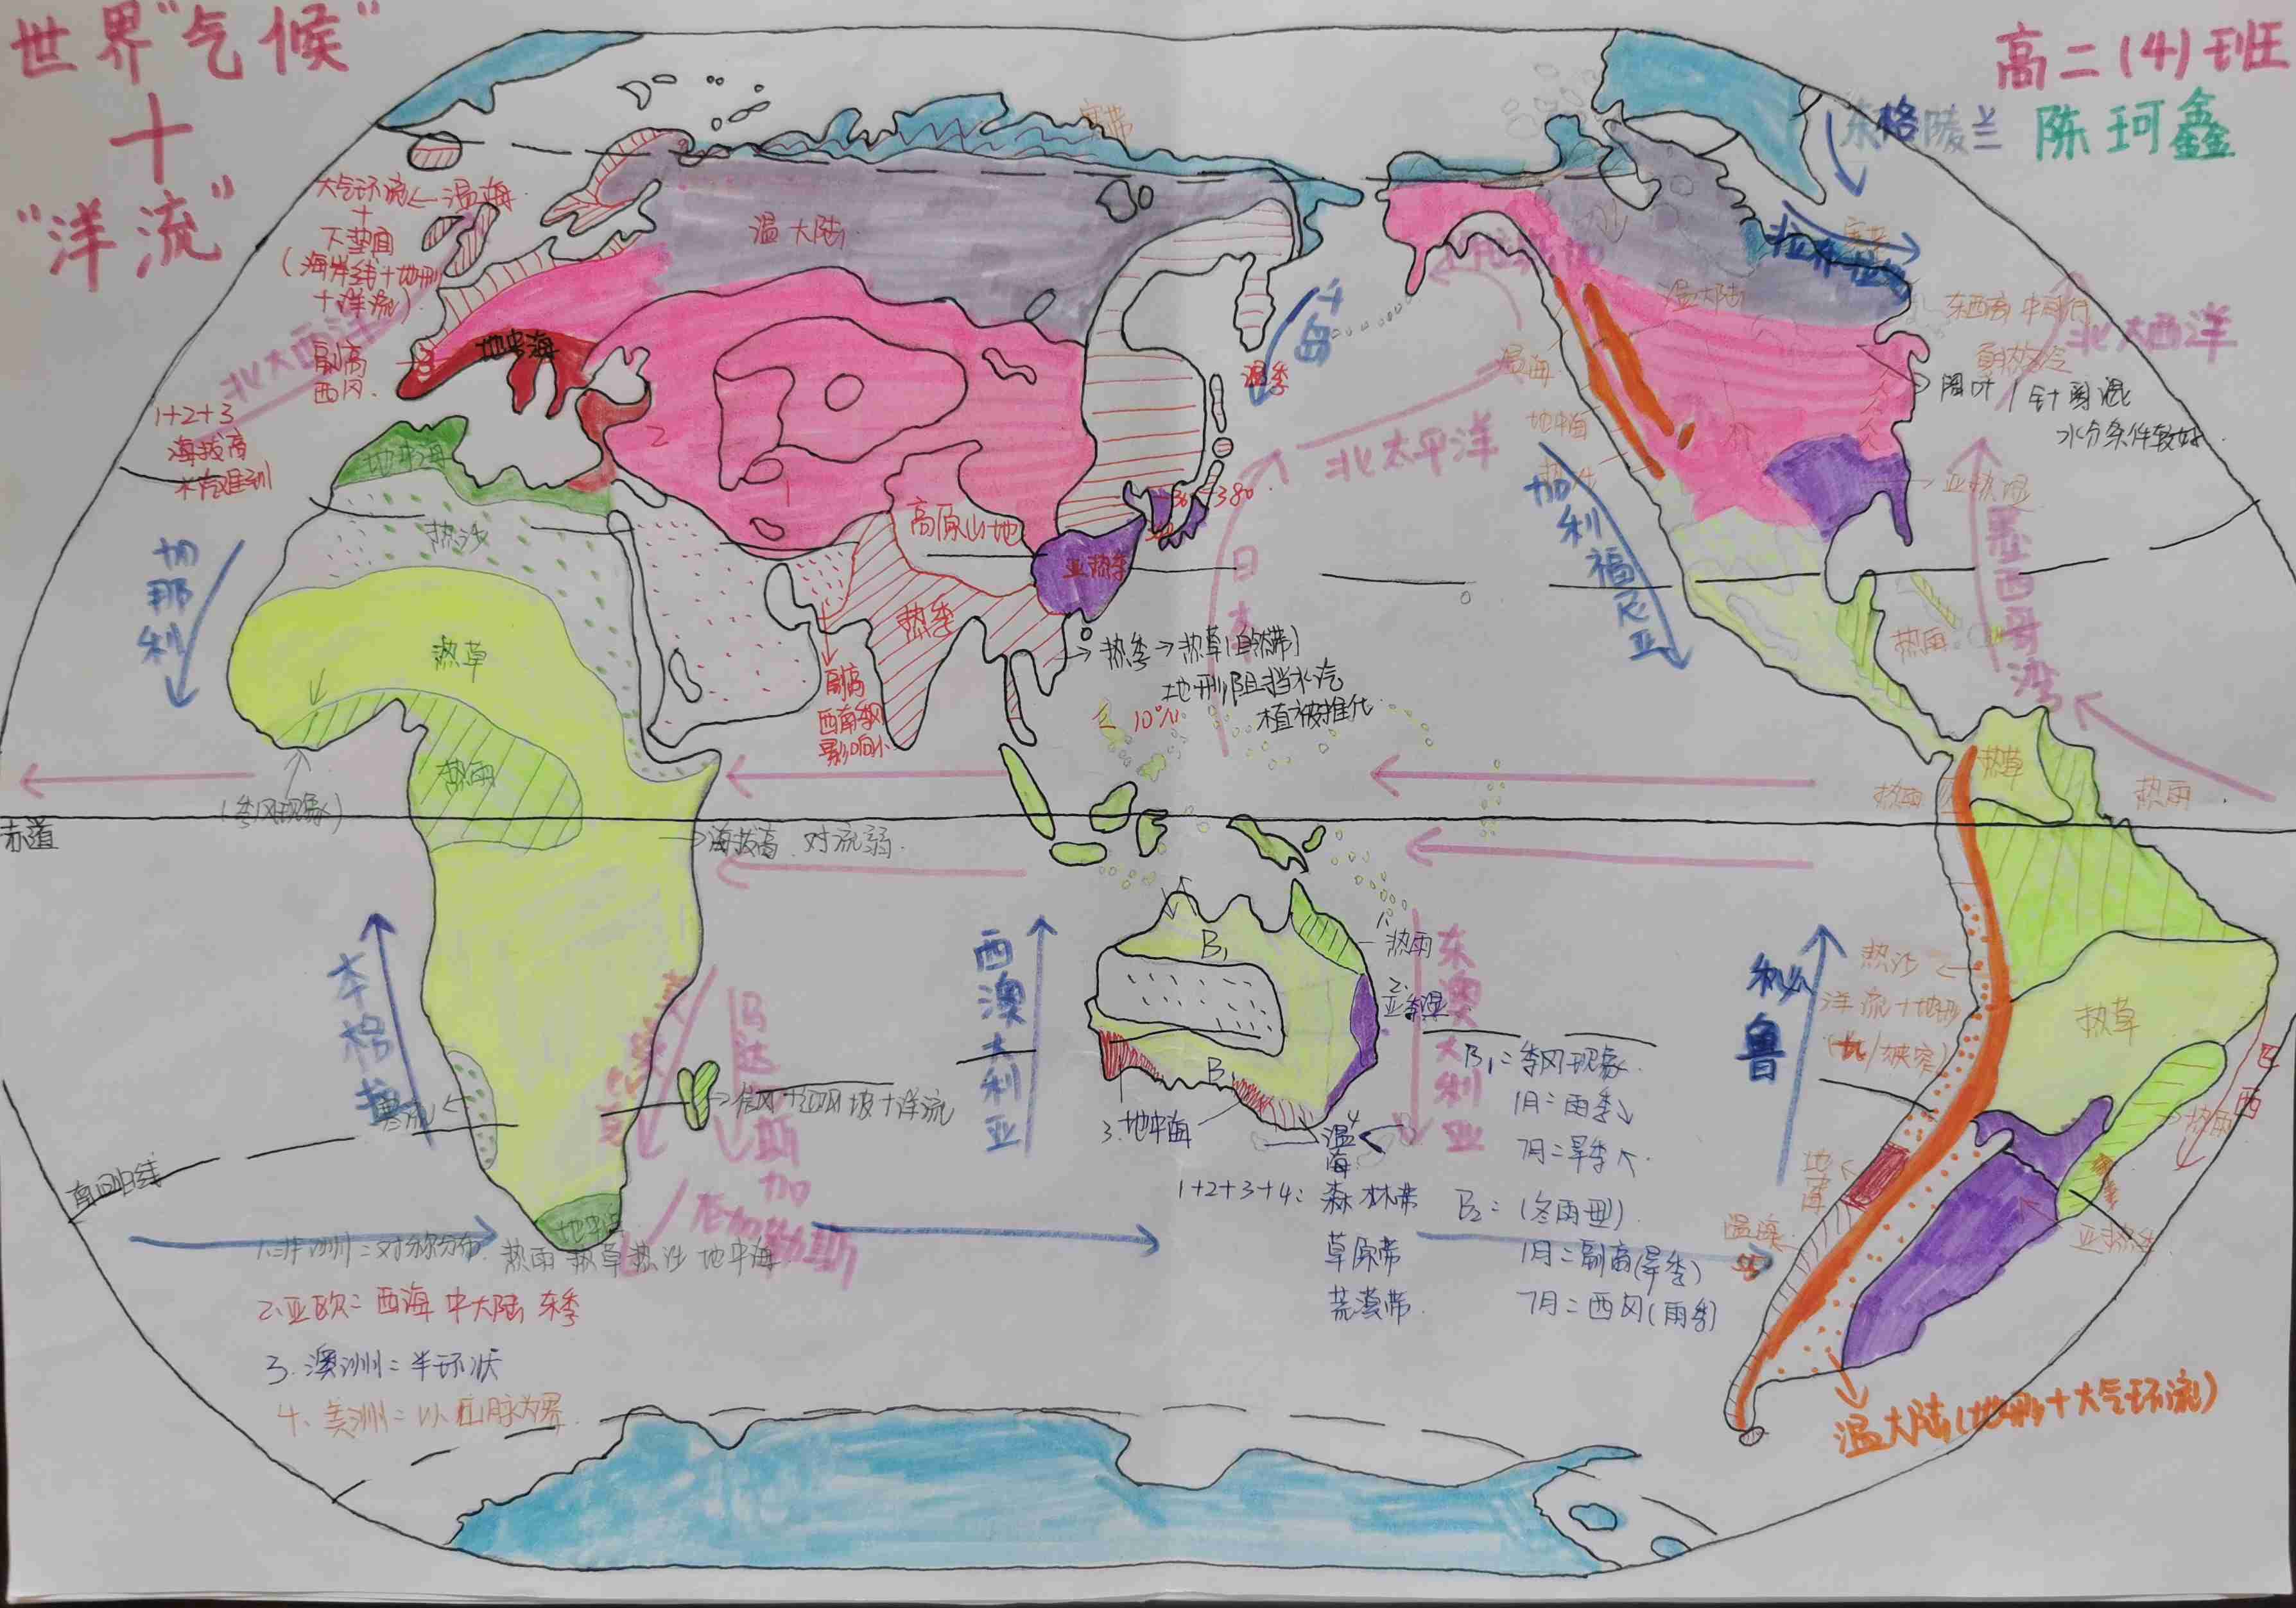 世界"气候"
+
"洋流"
高二(4)班
陈珂鑫
东格陵兰
寒带
大气环流←温海
+
下垫面
(海岸线+地形
+洋流)
北大西洋
副高
西风
1+2+3
海拔高
水汽难到
温大陆
地中海
地中海
热沙
热草
热雨
(季风现象)
加那利
高原山地
热季
亚热季
温季
千岛
日本
北太平洋
副高
西南季风
影响小
→热季→热草(自然带)
地形阻挡水汽
植被推化
10°N
温大陆
温海
地中海
加利福尼亚
东西高 中间低
北大西洋
阔叶/针阔混
水分条件较好
亚热湿
墨西哥湾
热雨
热草
热雨
热雨
赤道
→海拔高 对流弱
本格拉
寒流
马达加斯加
→信风+迎风坡+洋流
厄加勒斯
南回归线
地中海
西澳大利亚
东澳大利亚
B₁
1.热雨
2.亚季湿
3.地中海
4
温海
1+2+3+4:森林带
草原带
荒漠带
B₁=季风现象
1月=雨季↓
7月=旱季↖
B₂=(冬雨型)
1月=副高(旱季)
7月=西风(雨季)
秘鲁
热沙←
洋流+地形
热草
巴西
→热雨
亚热季
温海
温大陆(地形+大气环流)
1.非洲=对称分布 热雨 热草 热沙 地中海
2.亚欧=西海 中大陆 东季
3.澳洲=半环状
4.美洲=以山脉为界